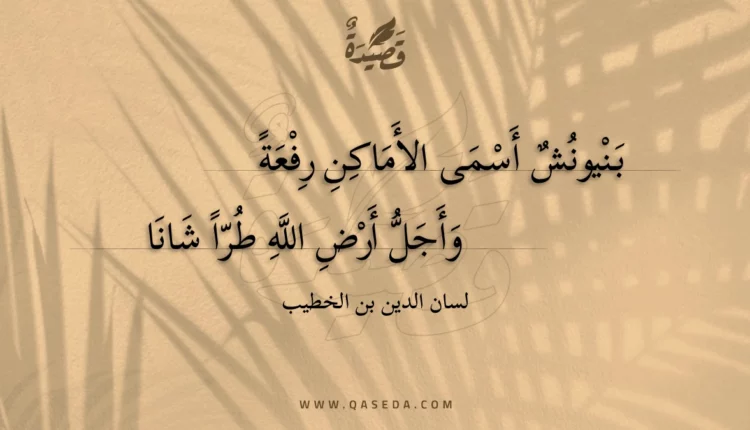 قَصِيْدَةٌ
بَنْيونُشٌ أَسْمَى الأَمَاكِنِ رِفْعَةً
وَأَجَلُّ أَرْضِ اللَّهِ طُرّاً شَانَا
لسان الدين بن الخطيب
WWW.QASEDA.COM